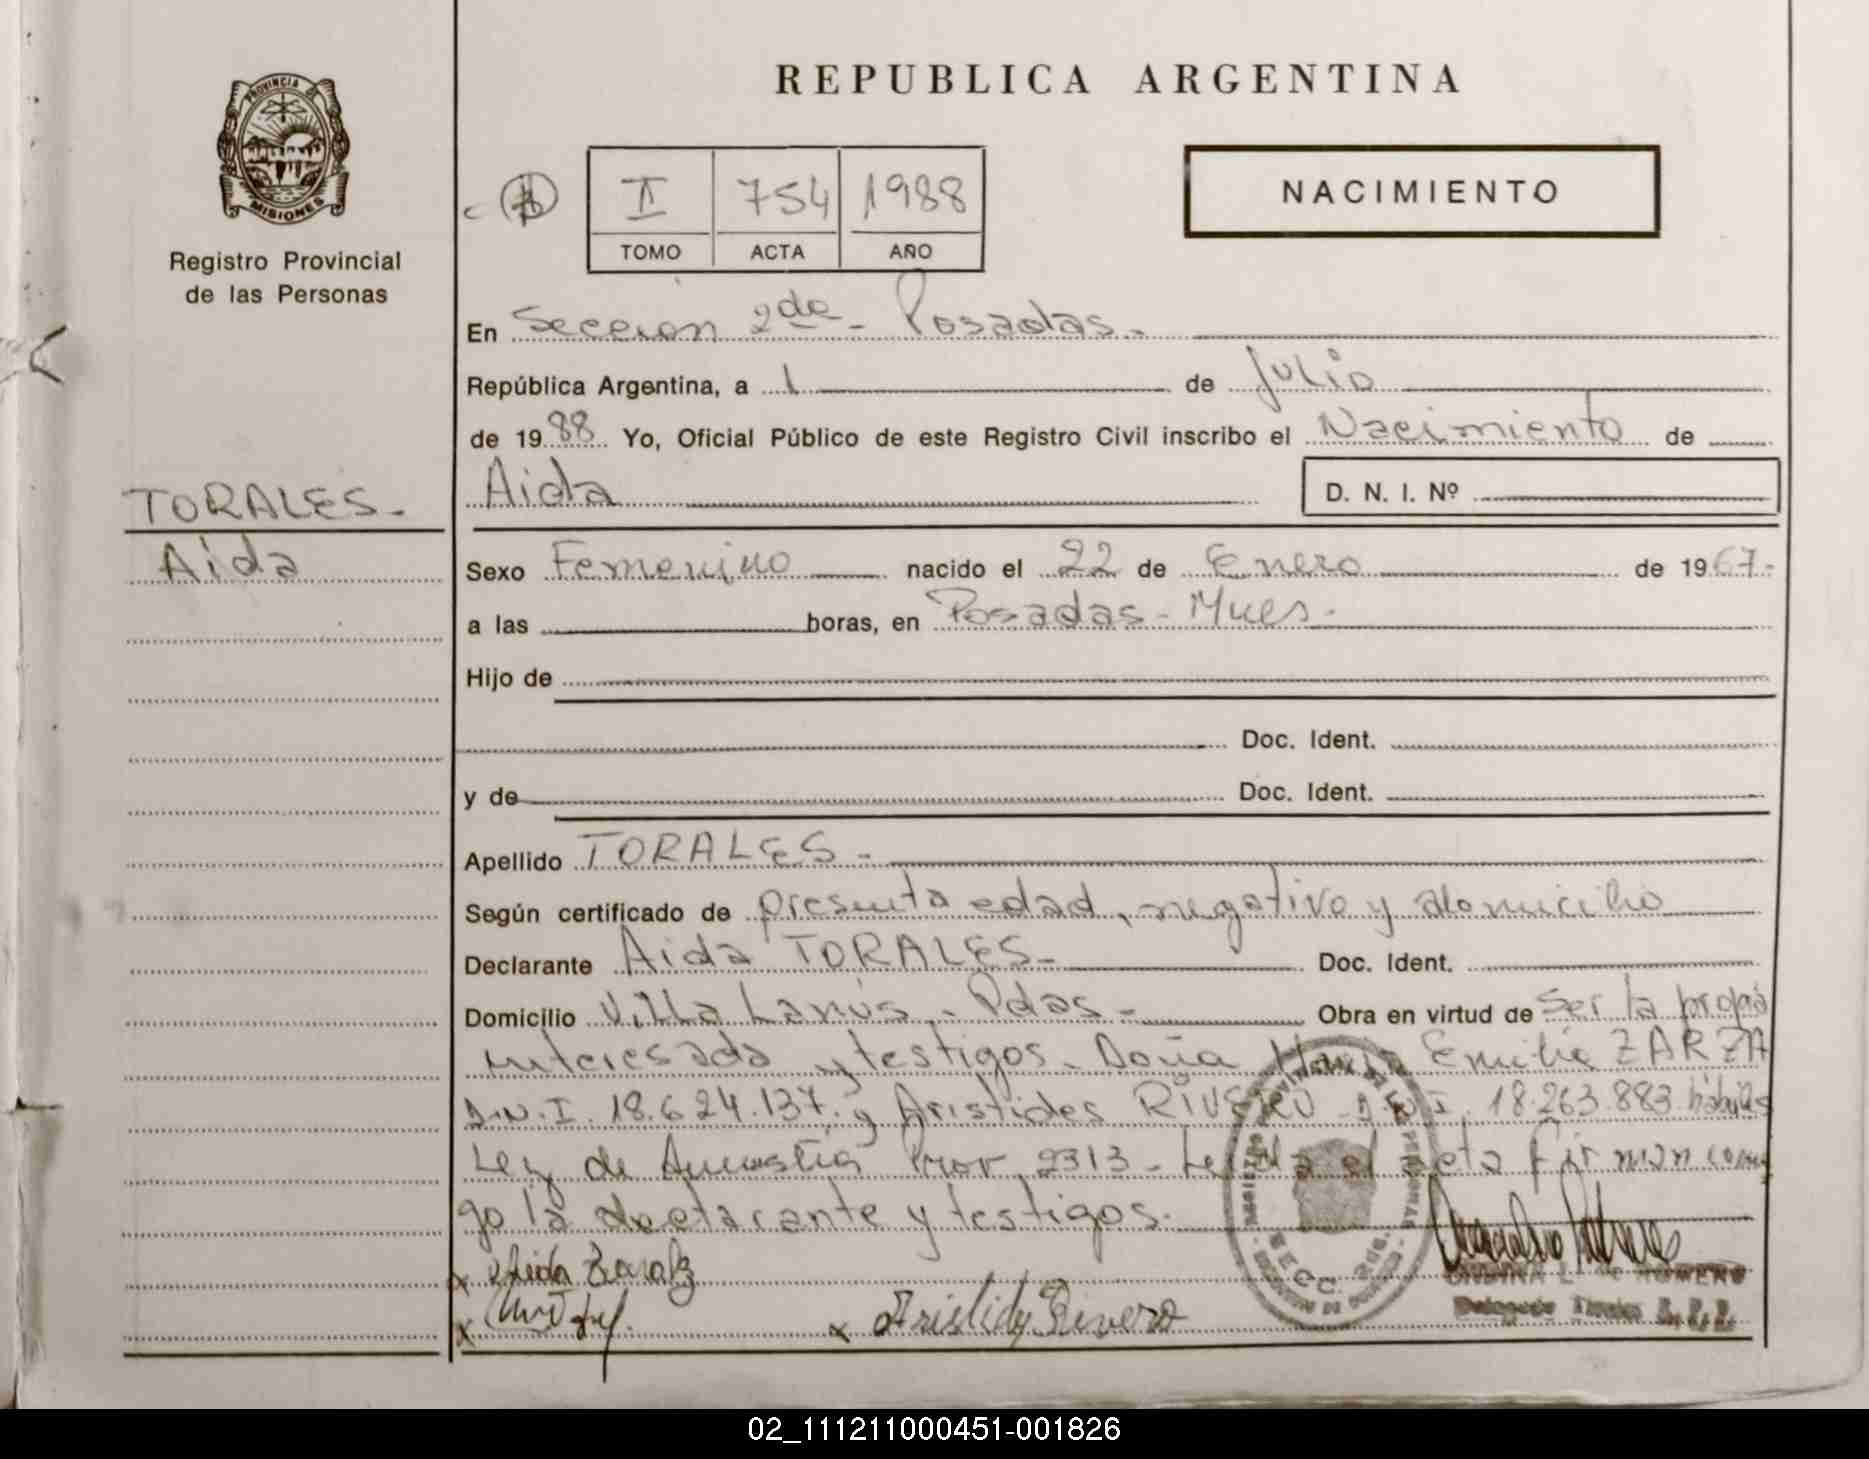 REPUBLICA ARGENTINA
PROVINCIA DE
MISIONES
Registro Provincial
de las Personas
II 754 1988
TOMO ACTA AÑO
NACIMIENTO
En Sección 2da - Posadas.-
República Argentina, a 1 de Julio
de 1988 Yo, Oficial Público de este Registro Civil inscribo el Nacimiento de
Aida D. N. I. Nº
TORALES.-
Aida
Sexo Femenino nacido el 22 de Enero de 1967.-
a las horas, en Posadas - Mnes.
Hijo de
Doc. Ident.
y de Doc. Ident.
Apellido TORALES.-
Según certificado de presunta edad, negativo y domicilio
Declarante Aida TORALES.- Doc. Ident.
Domicilio Villa Lanús - Pdas.- Obra en virtud de Ser la propia
interesada y testigos. Doña Emilia ZARZA
D.N.I. 18.624.137. y Aristides RIVERO D.N.I. 18.263.883 hábiles
Ley de Amnistía Prov 2313 - Leída el acta firman conmi
go la declarante y testigos.
x Aida
x
x Aristidy Rivero
02_111211000451-001826